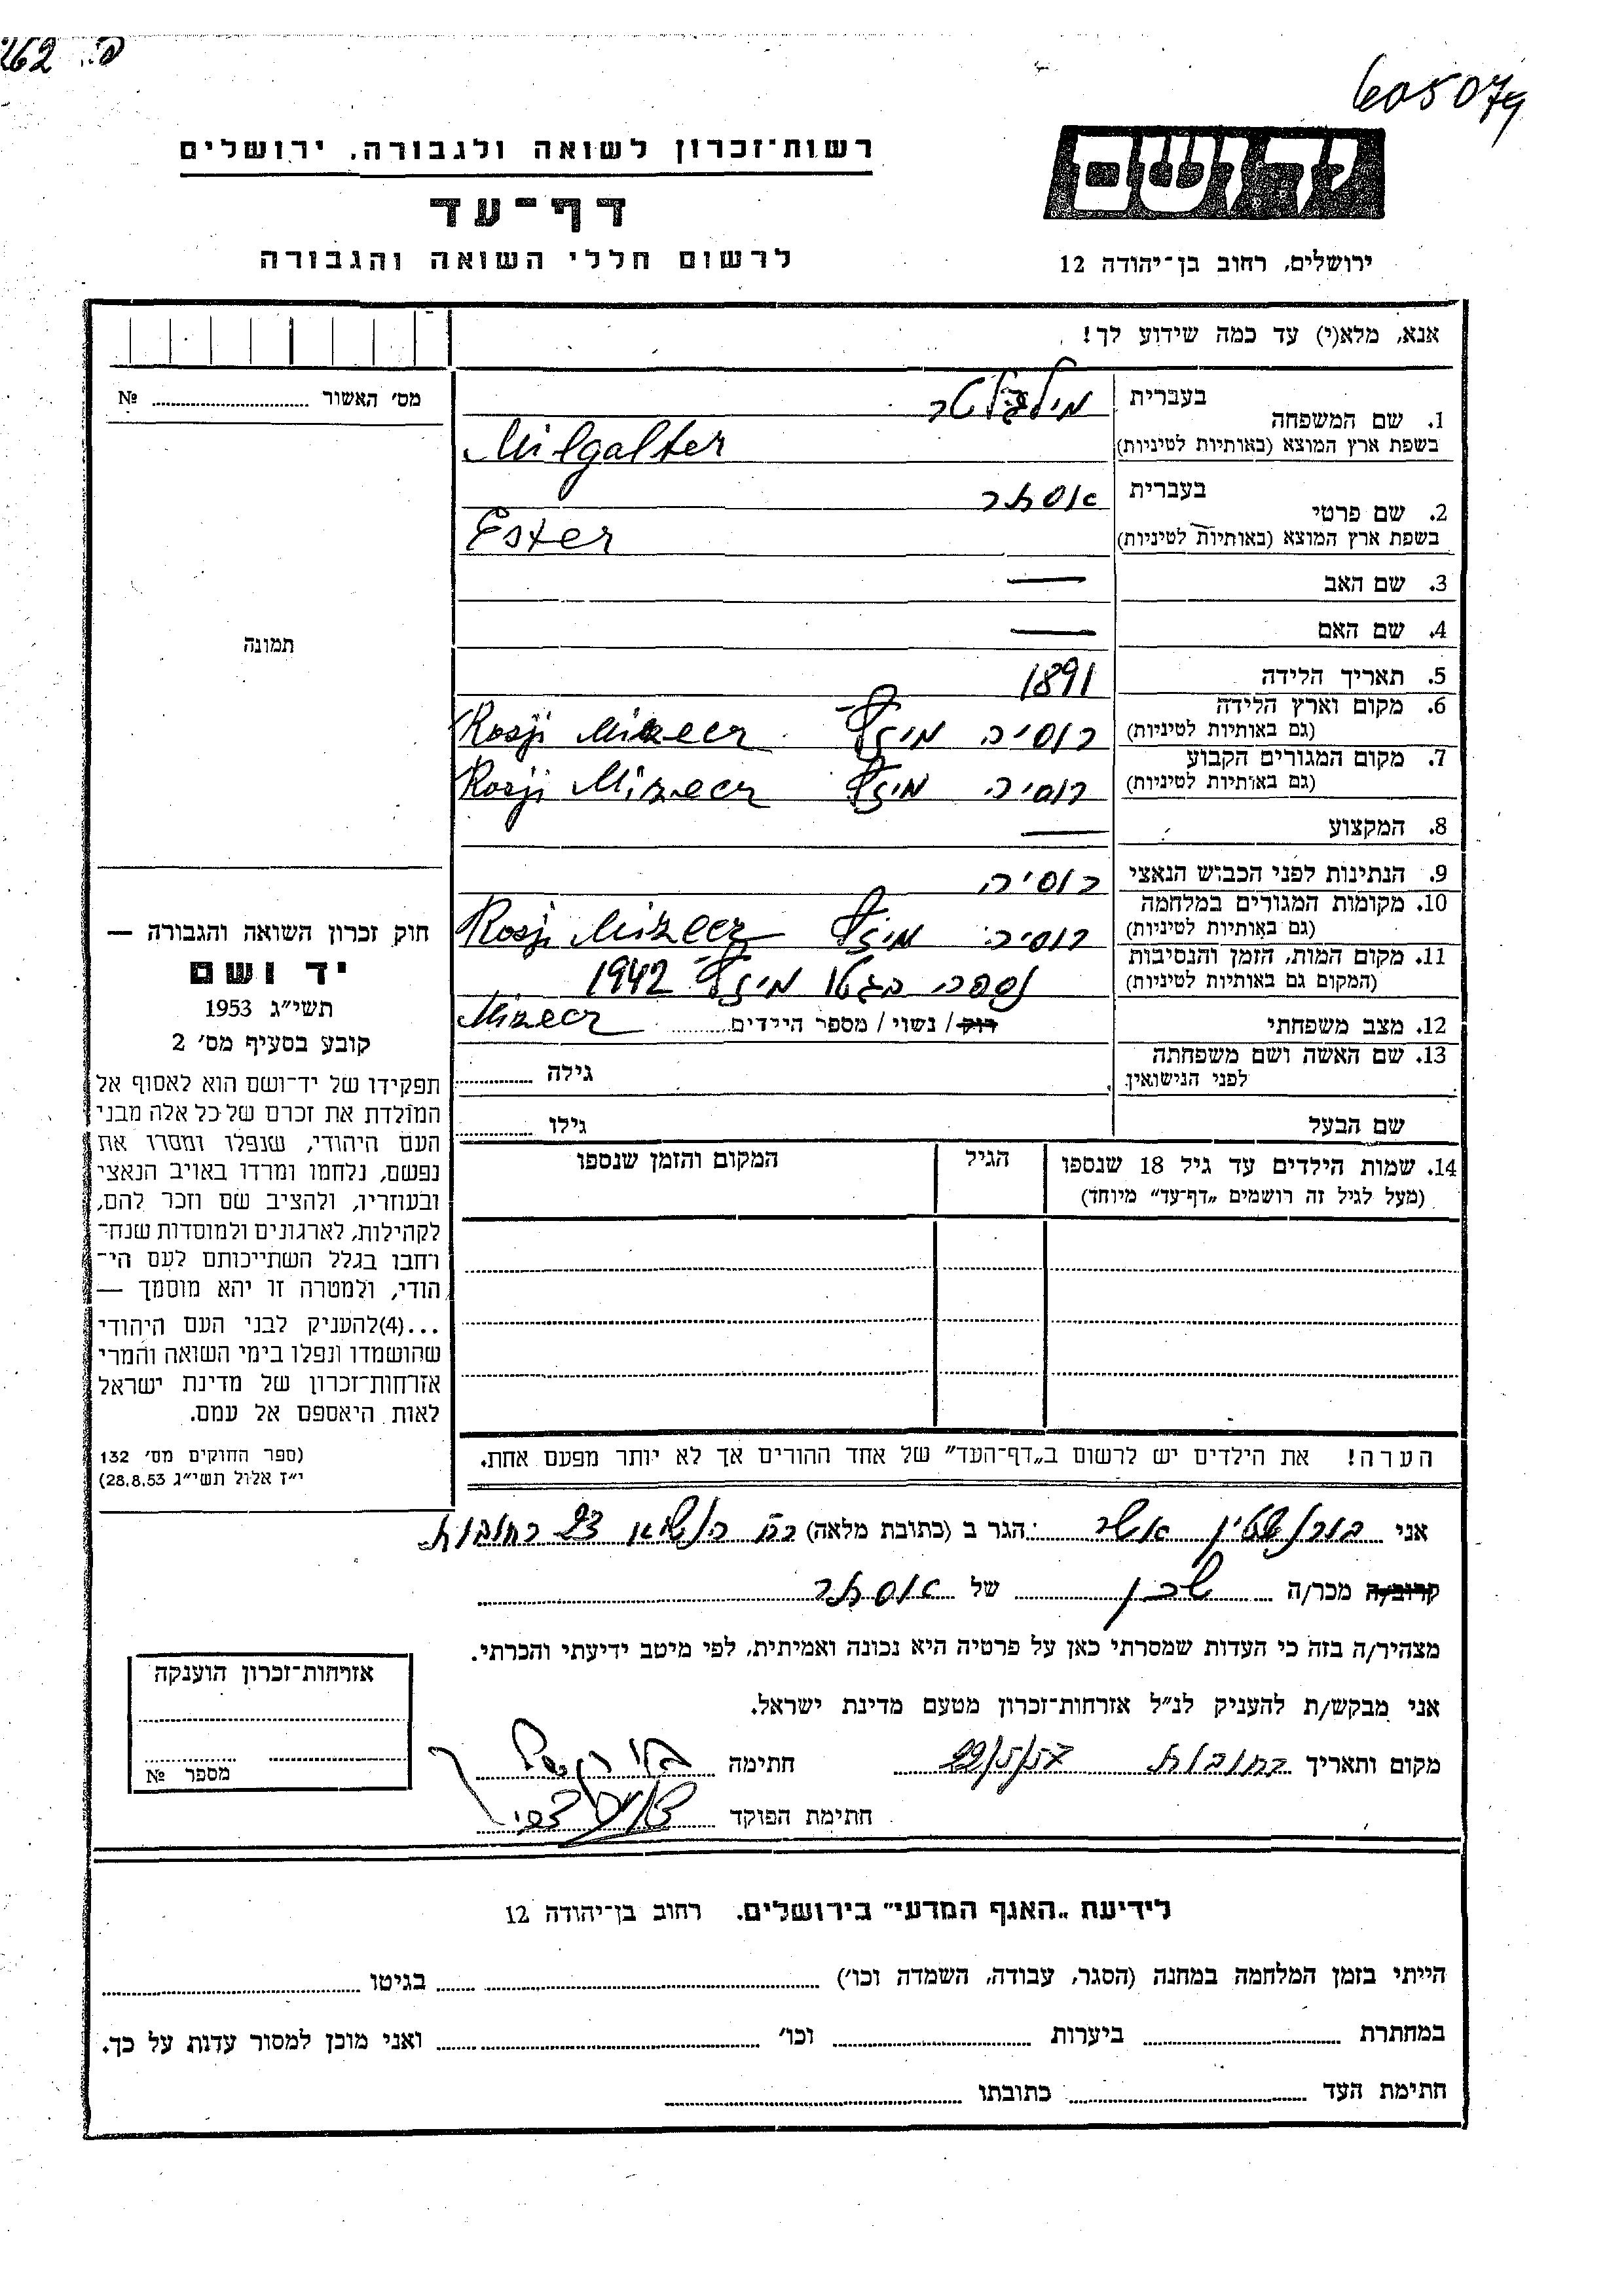 262 .פ
605079
יד ושם
רשות־זכרון לשואה ולגבורה, ירושלים
דף־עד
לרשום חללי השואה והגבורה
ירושלים, רחוב בן־יהודה 12
אנא, מלא(י) עד כמה שידוע לך!
מס׳ האשור ........ №
תמונה
חוק זכרון השואה והגבורה —
יד ושם
תשי״ג 1953
קובע בסעיף מס׳ 2
תפקידו של יד־ושם הוא לאסוף אל
המולדת את זכרם של כל אלה מבני
העם היהודי, שנפלו ומסרו את
נפשם, נלחמו ומרדו באויב הנאצי
ובעוזריו, ולהציב שם וזכר להם,
לקהילות, לארגונים ולמוסדות שנח־
רחבו בגלל השתייכותם לעם הי־
הודי, ולמטרה זו יהא מוסמך —
...(4)להעניק לבני העם היהודי
שהושמדו ונפלו בימי השואה והמרי
אזרחות־זכרון של מדינת ישראל
לאות היאספם אל עמם.
(ספר החוקים מס׳ 132
י״ז אלול תשי״ג 28.8.53)
1. שם המשפחה בעברית מילגלטר
בשפת ארץ המוצא (באותיות לטיניות) Milgalter
2. שם פרטי בעברית אסתר
בשפת ארץ המוצא (באותיות לטיניות) Ester
3. שם האב —
4. שם האם —
5. תאריך הלידה 1891
6. מקום וארץ הלידה
(גם באותיות לטיניות) רוסיה Rosji
7. מקום המגורים הקבוע
(גם באותיות לטיניות) רוסיה Rosji
8. המקצוע —
9. הנתינות לפני הכבוש הנאצי רוסיה
10. מקומות המגורים במלחמה
(גם באותיות לטיניות) רוסיה Rosji
11. מקום המות, הזמן והנסיבות
(המקום גם באותיות לטיניות) נספה בגטו 1942
12. מצב משפחתי רוק / נשוי / מספר הילדים........
13. שם האשה ושם משפחתה
לפני הנישואין גילה ........
שם הבעל גילו ........
14. שמות הילדים עד גיל 18 שנספו הגיל המקום והזמן שנספו
(מעל לגיל זה רושמים „דף־עד״ מיוחד)
הערה! את הילדים יש לרשום ב„דף־העד״ של אחד ההורים אך לא יותר מפעם אחת.
אני בורנשטיין אשר הגר ב (כתובת מלאה) 23 רחובות
קרוב/ה מכר/ה שכן של אסתר
מצהיר/ה בזה כי העדות שמסרתי כאן על פרטיה היא נכונה ואמיתית, לפי מיטב ידיעתי והכרתי.
אני מבקש/ת להעניק לנ״ל אזרחות־זכרון מטעם מדינת ישראל.
מקום ותאריך רחובות 22/5/57 חתימה
חתימת הפוקד
אזרחות־זכרון הוענקה
מספר №
לידיעת „האגף המדעי״ בירושלים. רחוב בן־יהודה 12
הייתי בזמן המלחמה במחנה (הסגר, עבודה, השמדה וכו׳) ........ בגיטו ........
במחתרת ........ ביערות ........ וכו׳ ........ ואני מוכן למסור עדות על כך.
חתימת העד ........ כתובתו ........